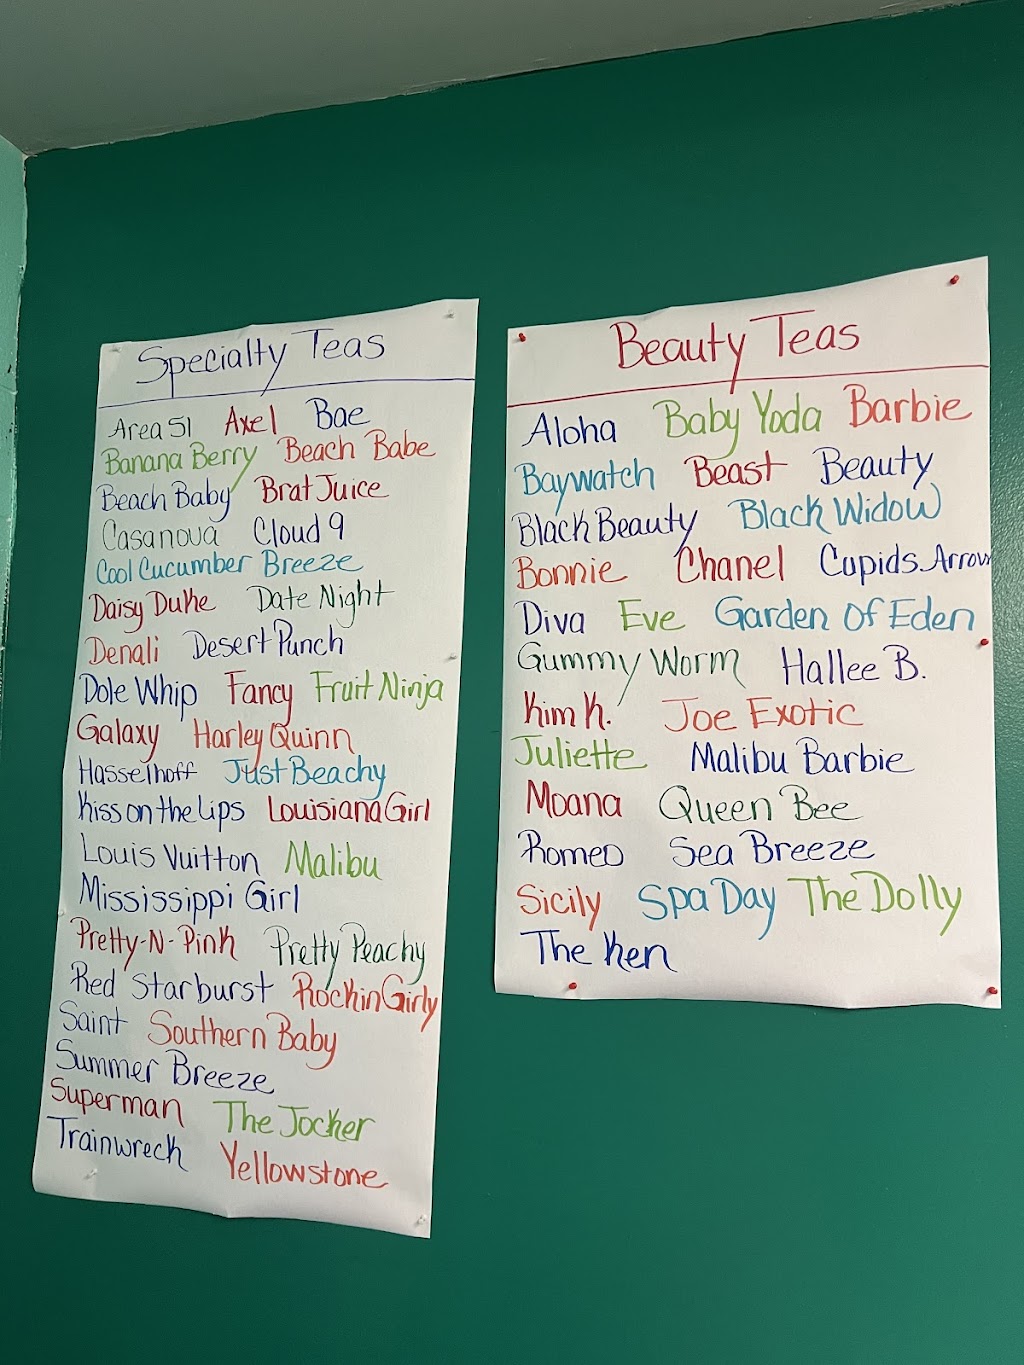 Specialty Teas
Area 51 Axel Bae
Banana Berry Beach Babe
Beach Baby Brat Juice
Casanova Cloud 9
Cool Cucumber Breeze
Daisy Duke Date Night
Denali Desert Punch
Dole Whip Fancy Fruit Ninja
Galaxy Harley Quinn
Hasselhoff Just Beachy
Kiss on the Lips Louisiana Girl
Louis Vuitton Malibu
Mississippi Girl
Pretty-N-Pink Pretty Peachy
Red Starburst Rockin Girly
Saint Southern Baby
Summer Breeze
Superman The Jocker
Trainwreck Yellowstone
Beauty Teas
Aloha Baby Yoda Barbie
Baywatch Beast Beauty
Black Beauty Black Widow
Bonnie Chanel Cupids Arrow
Diva Eve Garden Of Eden
Gummy Worm Hallee B.
Kim K. Joe Exotic
Juliette Malibu Barbie
Moana Queen Bee
Romeo Sea Breeze
Sicily Spa Day The Dolly
The Ken